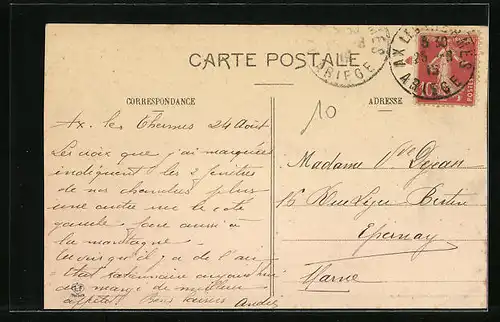 CARTE POSTALE
CORRESPONDANCE
ADRESSE
10
AX LES THERMES
5 30
25 -8
ARIEGE
Ax. les Thermes 24 Août
Les croix que j'ai marquées
indiquent les 2 fenêtres
de nos chambres plus
une autre sur le côté
gauche face aussi à
la montagne.
mangé de meilleur
appétit! Bons baisers André
Madame Vve
16 Rue Liger Bertin
Epernay
Marne